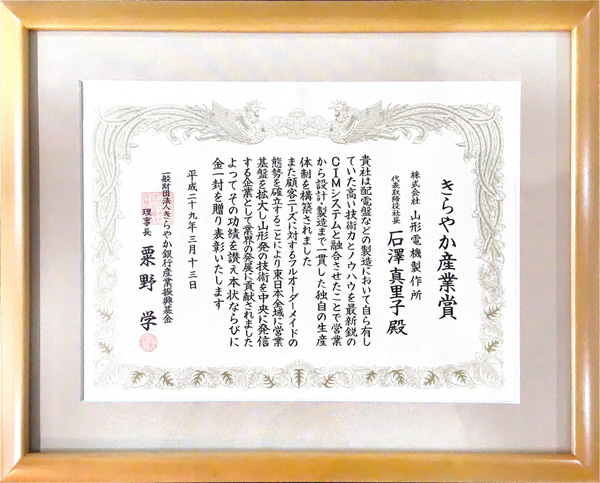 きらやか産業賞
株式会社 山形電機製作所
代表取締役社長 石澤真里子 殿
貴社は配電盤などの製造において自ら有し
ていた高い技術力とノウハウを最新鋭の
CIMシステムと融合させたことで営業
から設計・製造まで一貫した独自の生産
体制を構築されました
また顧客ニーズに対するフルオーダーメイドの
態勢を確立することにより東日本全域に営業
基盤を拡大し山形発の技術を中央に発信
する企業として業界の発展に貢献されました
よってその功績を讃え本状ならびに
金一封を贈り表彰いたします
平成二十九年三月十三日
一般財団法人きらやか銀行産業振興基金
理事長 粟野 学